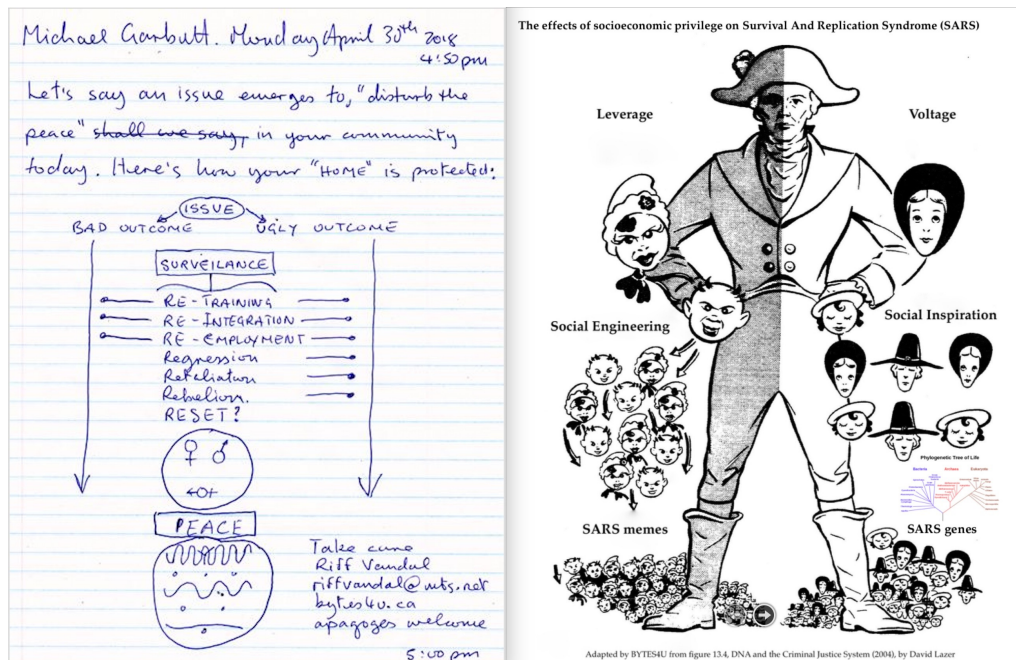 Michael Garbutt. Monday April 30th 2018
4:50pm
Let's say an issue emerges to, "disturb the
peace" shall we say, in your community
today. Here's how your "HOME" is protected:
ISSUE
BAD OUTCOME UGLY OUTCOME
SURVEILANCE
RE-TRAINING
RE-INTEGRATION
RE-EMPLOYMENT
Regression
Retaliation
Rebelion.
RESET?
PEACE
Take care
Riff Vandal
riffvandal@mts.net
bytes4u.ca
apagoges welcome
5:00 pm
The effects of socioeconomic privilege on Survival And Replication Syndrome (SARS)
Leverage
Voltage
Social Engineering
Social Inspiration
Phylogenetic Tree of Life
Bacteria Archaea Eukaryota
SARS memes
SARS genes
Adapted by BYTES4U from figure 13.4, DNA and the Criminal Justice System (2004), by David Lazer